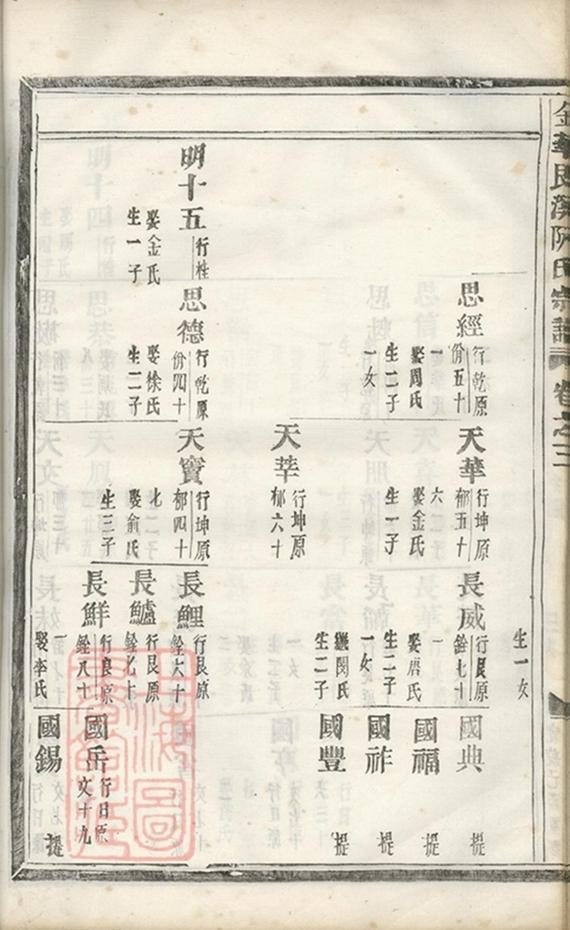 金華良溪阮氏宗譜 卷之三
生一女
思經 行乾原份五十一 娶周氏 生二子 一女
天華 行坤原郁五十六 娶金氏 生一子
長威 行艮原銓七十一 娶唐氏 生二子 一女 繼閔氏 生二子
國典 提
國福 提
國祚 提
國豐 提
天莘 行坤原郁六十
明十五 行桂 娶金氏 生一子
思德 行乾原份四十 娶徐氏 生二子
天寶 行坤原郁四十七 娶俞氏 生三子
長鯉 行艮原銓六十
長鱸 行艮原銓七十
長鮮 行良原銓八十一 娶李氏
國岳 行日原文十九
國錫 提